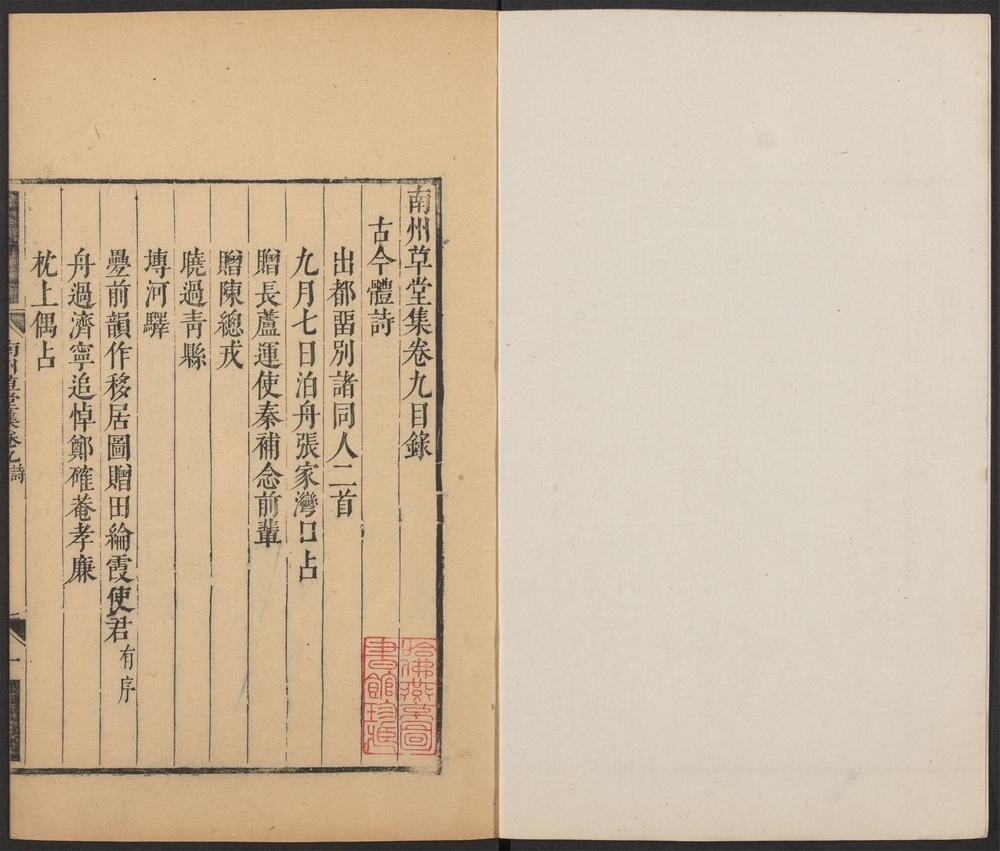 南州草堂集卷九目錄
古今體詩
出都畱別諸同人二首
九月七日泊舟張家灣口占
贈長蘆運使秦補念前輩
贈陳總戎
曉過青縣
塼河驛
疊前韻作移居圖贈田綸霞使君有序
舟過濟寧追悼鄭確菴孝廉
枕上偶占
南州草堂集卷九 詩
一
哈佛燕京圖
書館珍藏